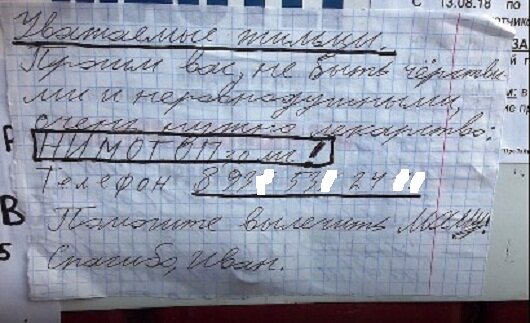 С 13.08.18 по
ЗА
Уважаемые жильцы.
Просим вас, не быть чёрствы
ми и неравнодушными,
очень нужно лекарство:
НИМОТОП
Телефон 8 93 53 24
Помогите вылечить Маму!
Спасибо, Иван.
В